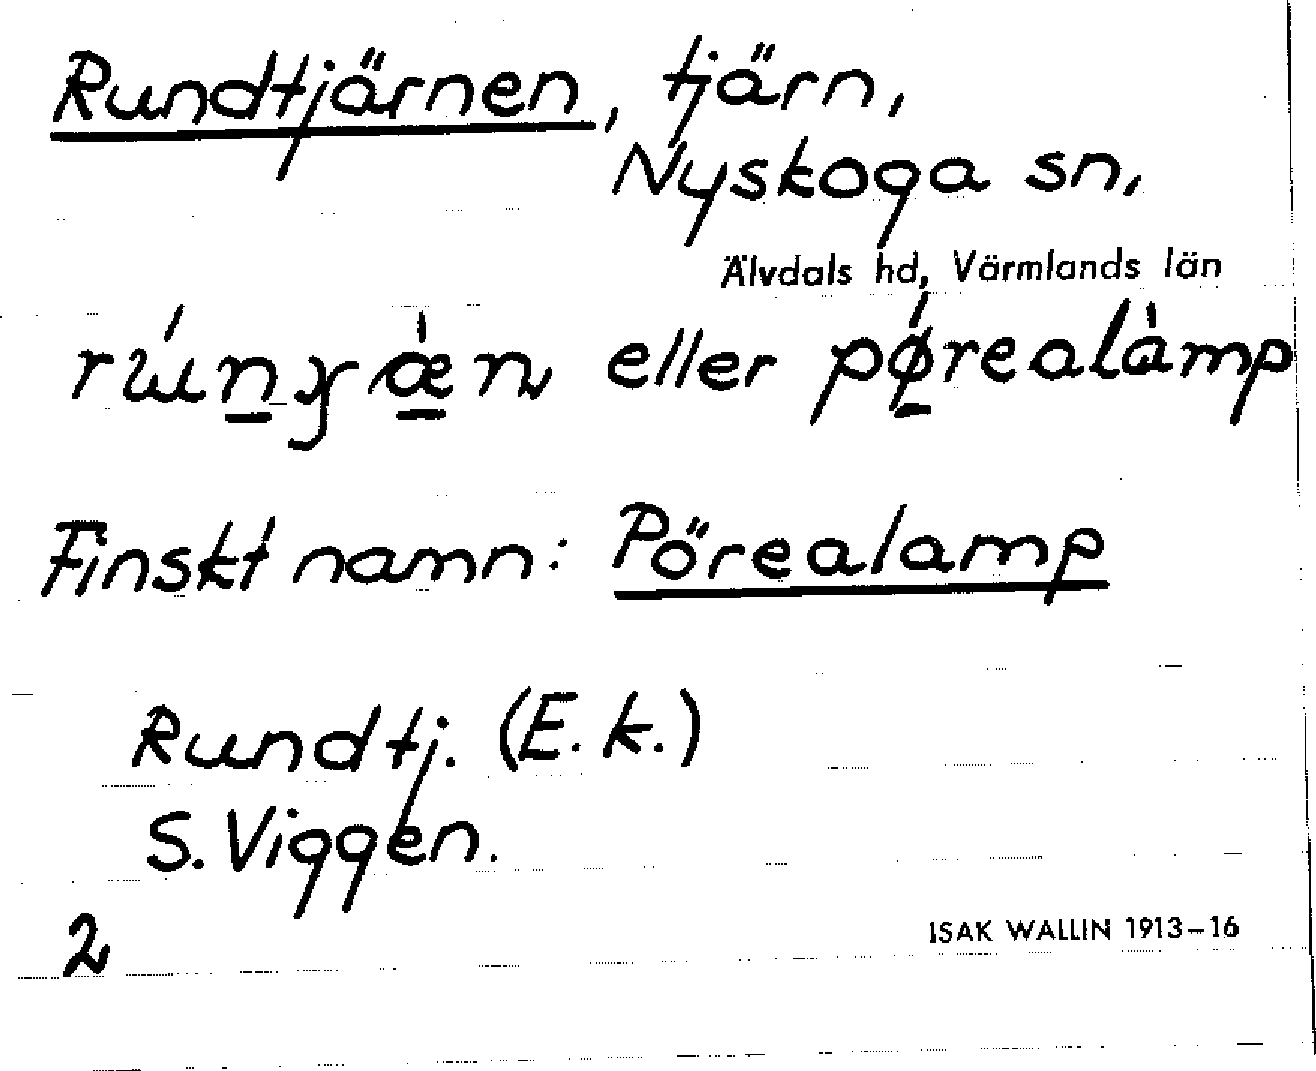 Rundtjärnen, tjärn,
Nyskoga sn,
Älvdals hd, Värmlands län
eller pø̀realàmp
Finskt namn: Pörealamp
Rundtj. (E.k.)
S. Viggen.
2
ISAK WALLIN 1913–16